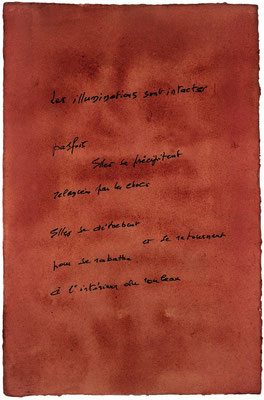 Les illuminations sont intactes
parfois
Elles se précipitent
par les chocs
Elles se détachent
et se retournent
pour se rabattre
à l'intérieur du